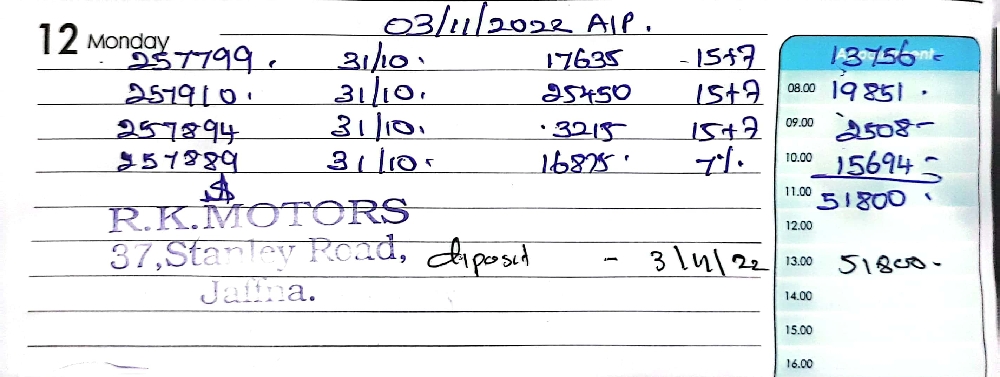 03/11/2022 A/P.
12 Monday
257799. 31/10. 17635 - 15+7 13756 -
257910. 31/10. 25450 15+7 08.00 19851.
257894 31/10. 3215 15+7 09.00 2508-
257889 31/10. 16875. 7%. 10.00 15694-
R.K.MOTORS 11.00 51800.
12.00
37,Stanley Road, diposit - 3/11/22 13.00 51800-
Jaffna. 14.00
15.00
16.00